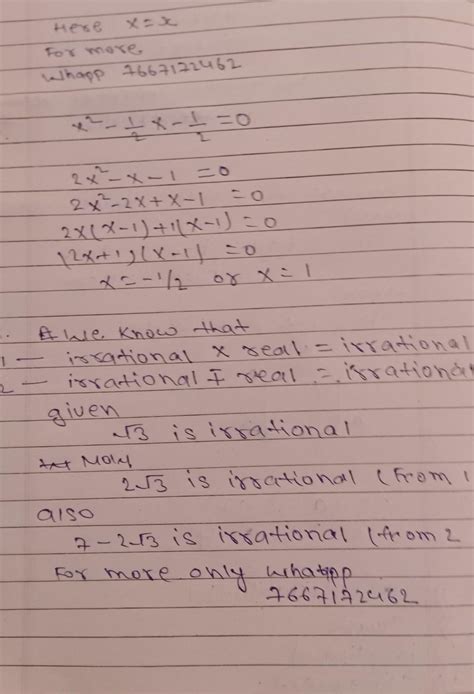 Here x=x
For more
Whapp 7667172462
x²-1/2x-1/2=0
2x²-x-1=0
2x²-2x+x-1=0
2x(x-1)+1(x-1)=0
(2x+1)(x-1)=0
x=-1/2 or x=1
We Know that
1- irrational x real = irrational
2- irrational ∓ real = irrational
given
√3 is irrational
Now
2√3 is irrational (from 1
also
7-2√3 is irrational (from 2
For more only whatpp
7667172462